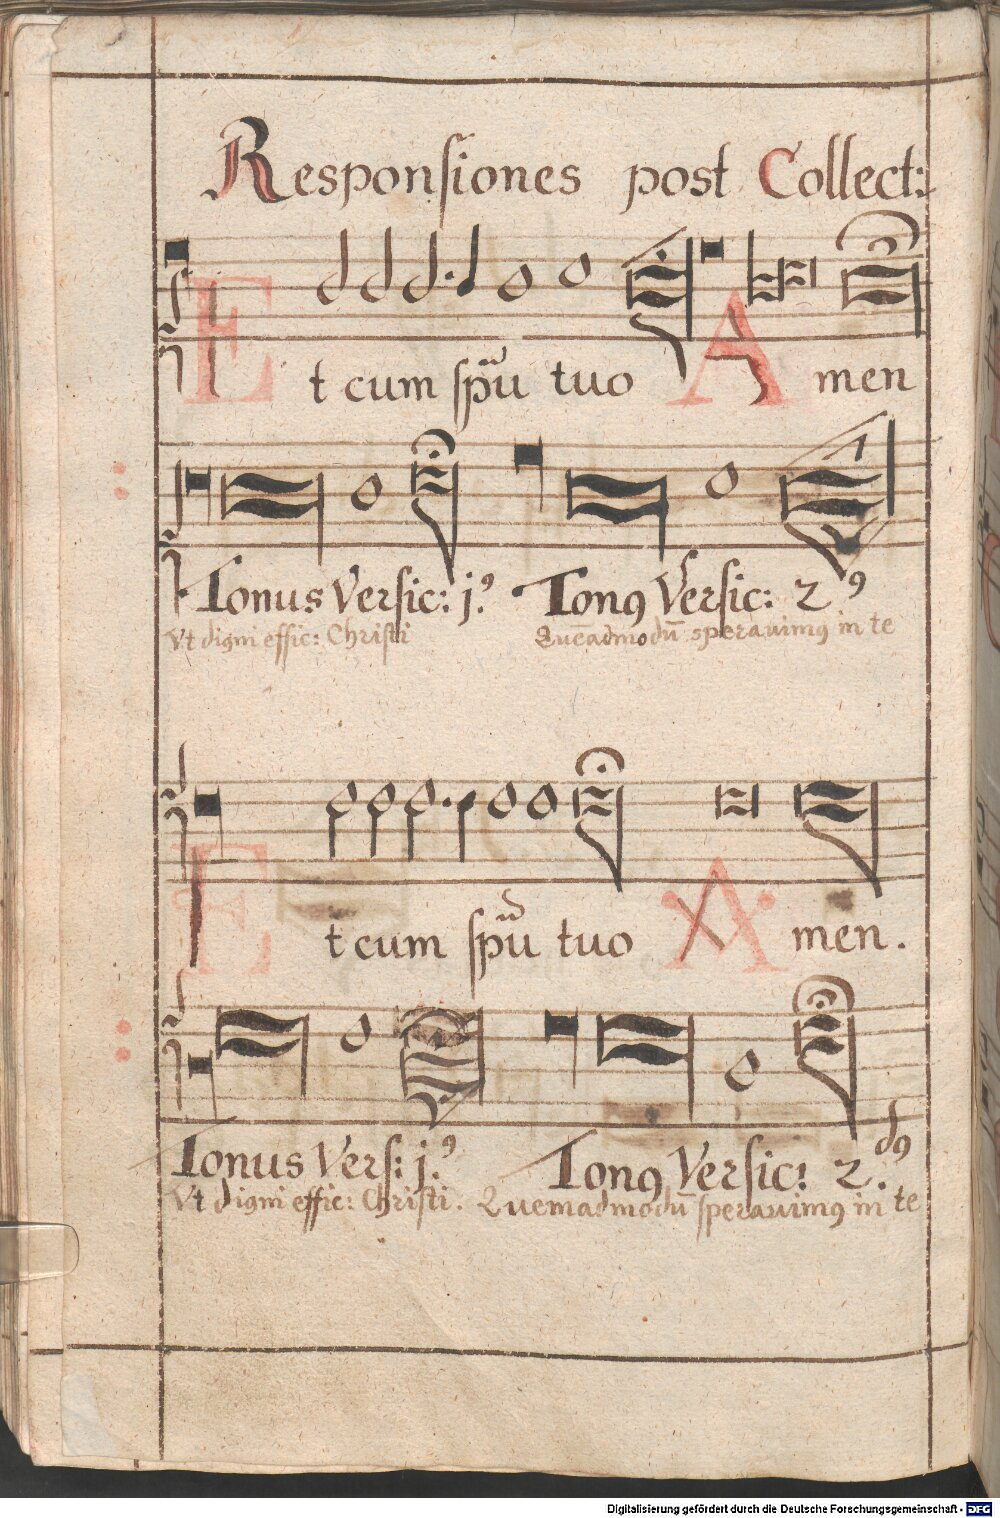 Responsiones post Collect:
Et cum spū tuo Amen
Tonus Versic: j.⁹ Tonꝯ Versic: 2⁹
Vt digni effic: Christi Quēadmodū speravimꝯ in te
Et cum spū tuo Amen.
Tonus Vers: j.⁹ Tonꝯ Versic: 2.dꝯ
Vt digni effic: Christi. Quemadmodū speravimꝯ in te
Digitalisierung gefördert durch die Deutsche Forschungsgemeinschaft - DFG